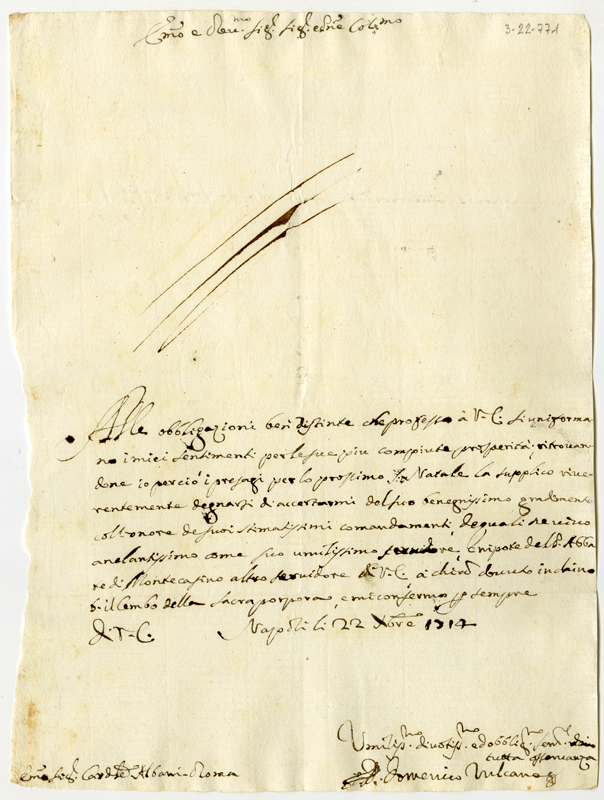 3-22-771
Em͞o e Reu.mo Sig.r Sig.r e Pñe Col.mo
Alle obbligazioni ben distinte che professo à V. E. si uniforma
no i miei sentimenti per le sue piu compiute prosperità; ritrouan
done io perciò i presagi per lo prossimo Natale la supplico riue
rentemente degnarsi di accertarmi del suo benegnissimo gradimento
coll onore de suoi stimatissimi comandamenti, de quali ne viuo
anelantissimo come suo umilissimo seruidore, e nipote del Abba
te di Montecasino altro seruidore di V. E., à chi con douuto inchino
il lembo della sacra porpora, e mi confermo p sempre
Di V. E. Napoli li 22 Xbre 1714
Umiliss.mo diuotiss.mo ed obblig.mo
tutta osseruanza
Domenico Vulcano
Em͞o Sig.r Card.le Albani Roma